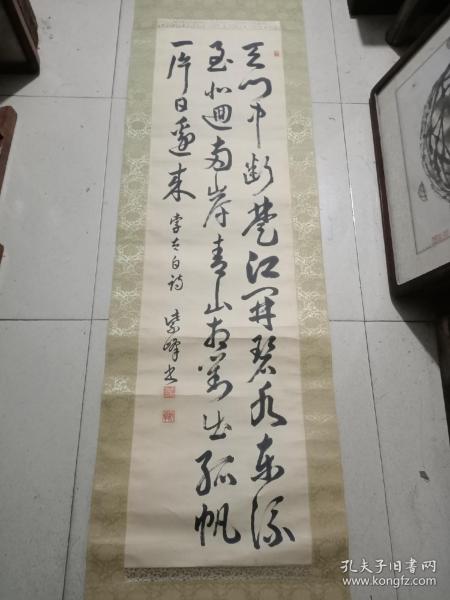 天门中断楚江开碧水东流
至北回两岸青山相对出孤帆
一片日边来 李太白诗 紫峰书
孔夫子旧书网
www.kongfz.com